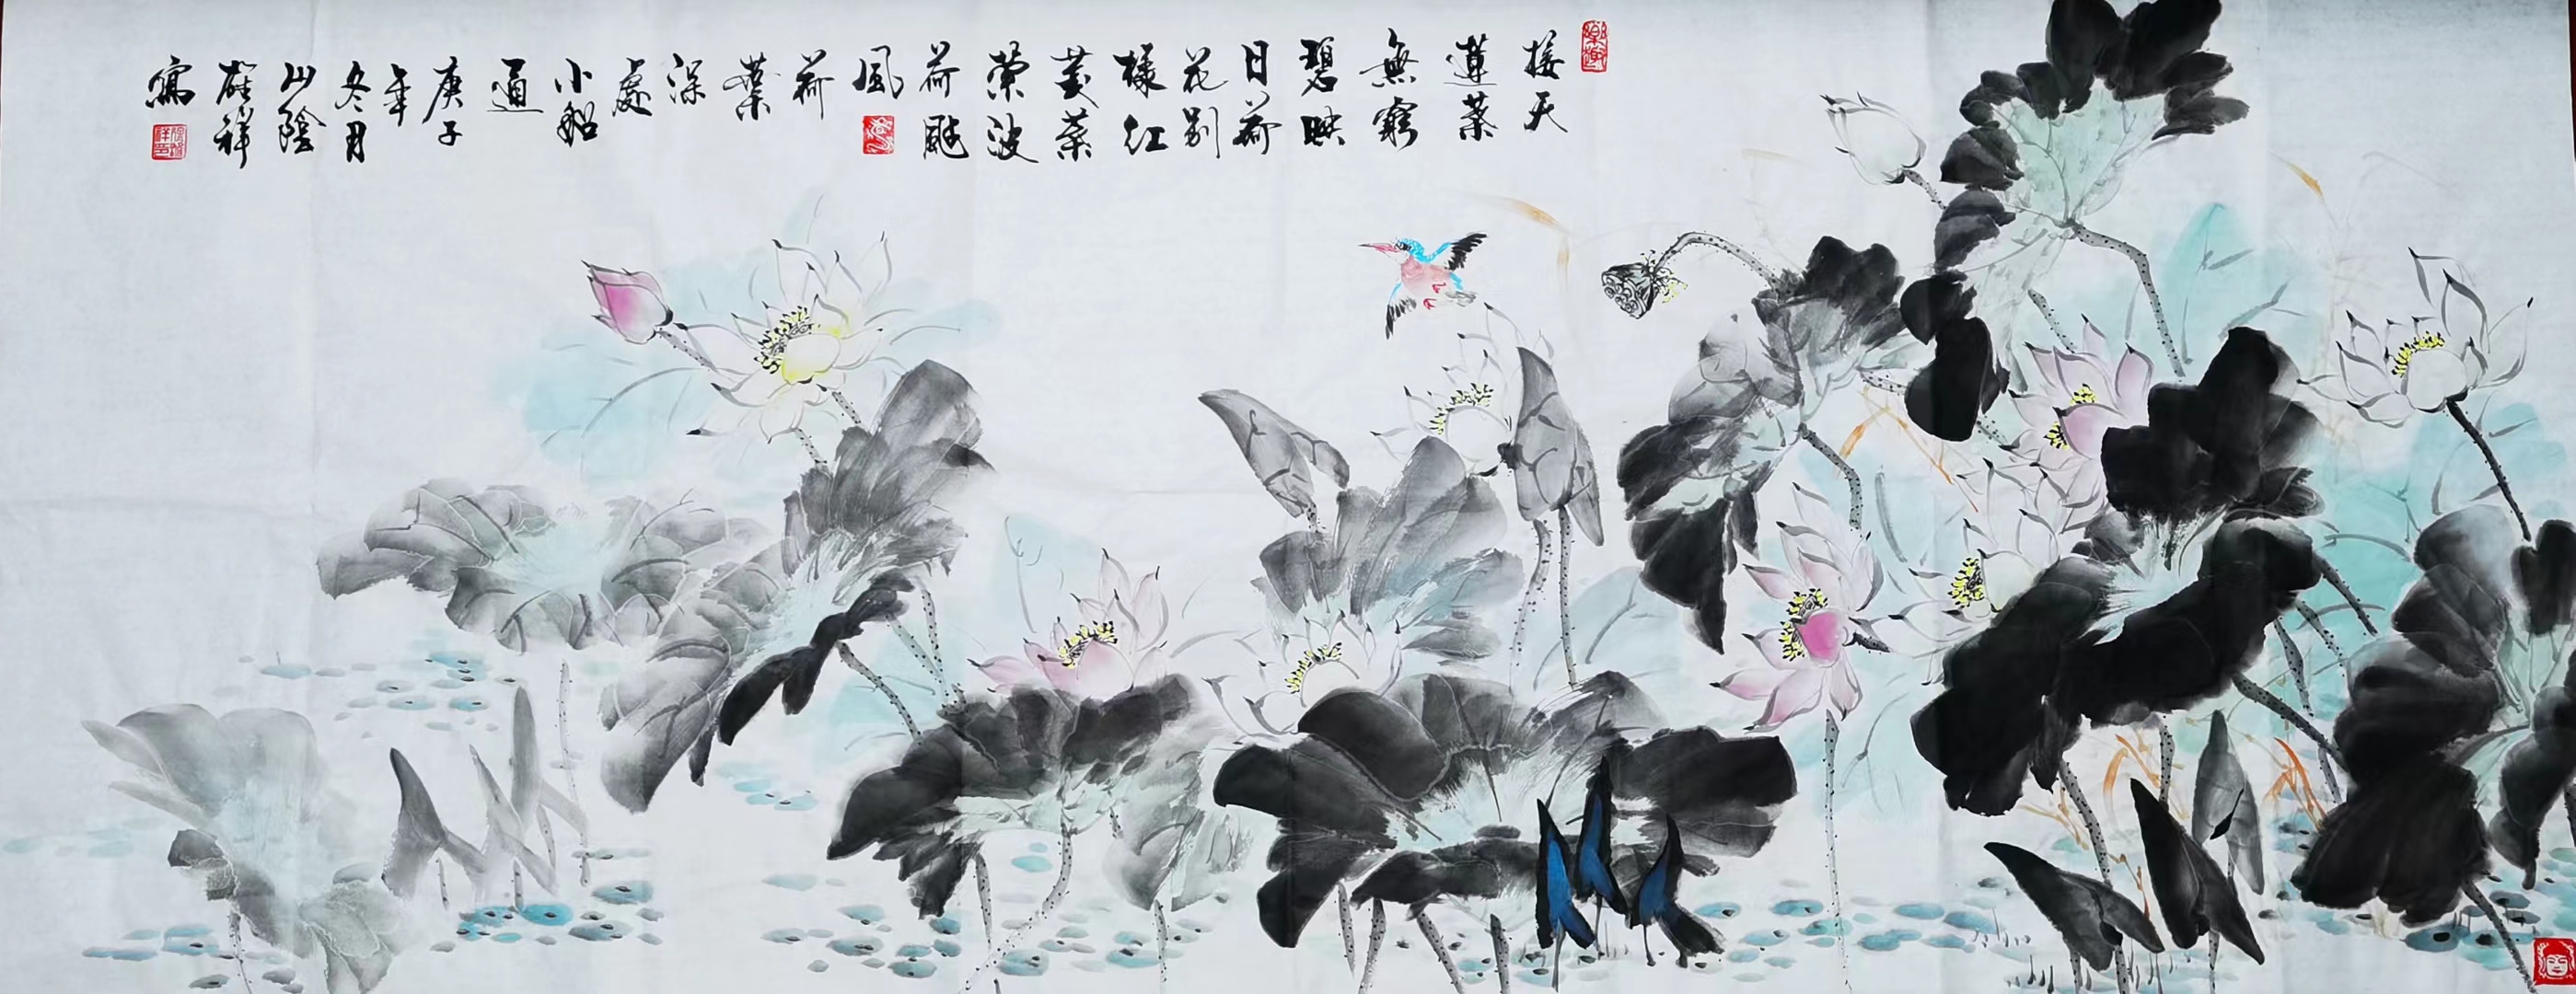 接天
蓮葉
無窮
碧映
日荷
花别
樣紅
菱葉
榮波
荷颭
風
荷
葉
深
處
小船
通
庚子
年
冬月
山陰
祥
寫